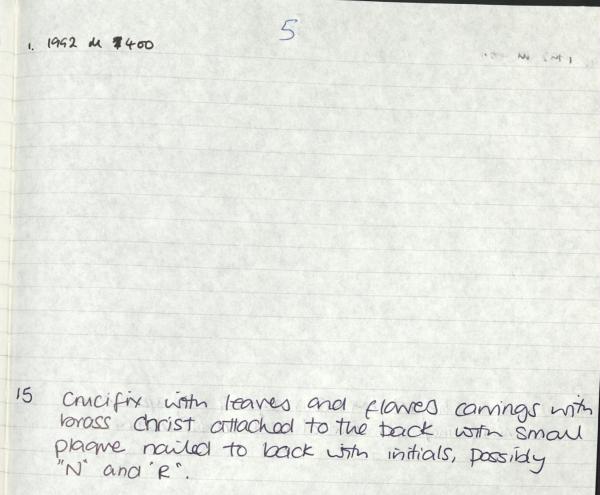 5
1. 1992 de $400
15 Crucifix with leaves and flowes carvings with
brass Christ attached to the back with small
plaque nailed to back with initials, possibly
"N" and "R".